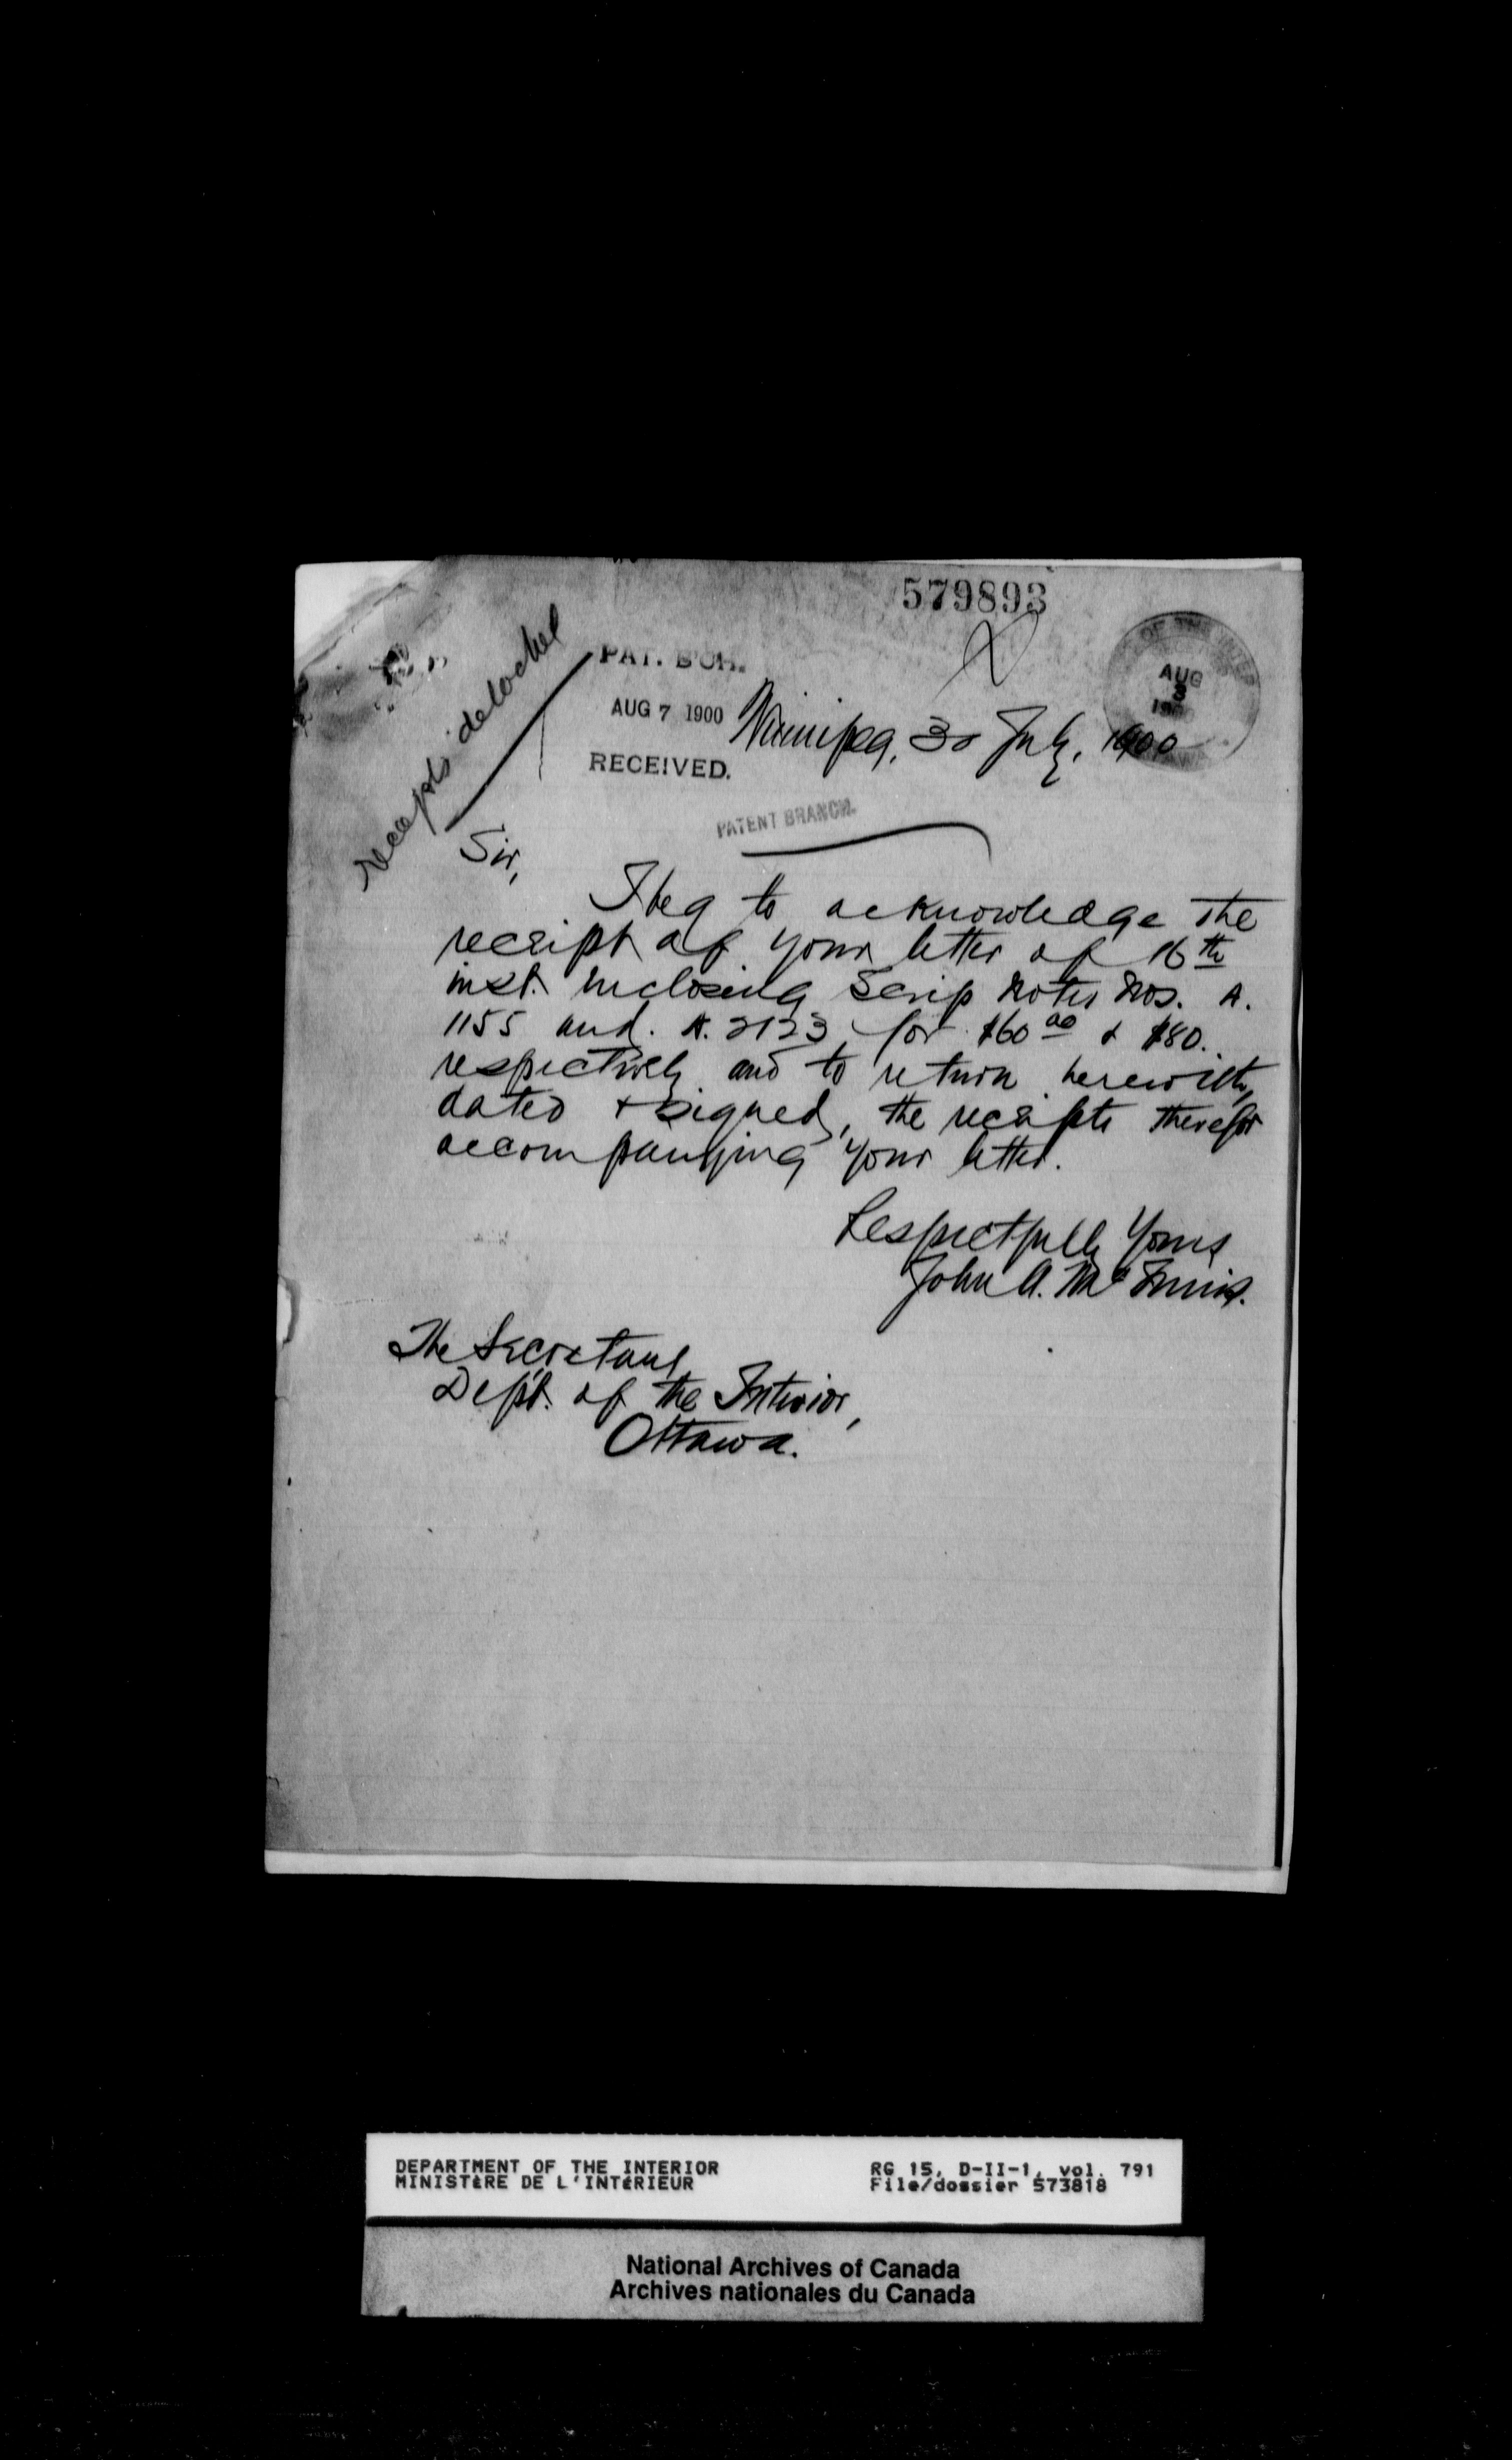 579893
receipts detached
PAT. B'CH.
AUG 7 1900
RECEIVED.
OF THE
AUG
3
1900
Winnipeg, 30 July, 1900
PATENT BRANCH.
Sir,
I beg to acknowledge the
receipt of your letter of 16th
inst. inclosing Scrip Notes Nos. A.
1155 and. A. 2123 for $60 00 & $80.
respectively and to return herewith,
dated & signed, the receipts therefor
accompanying your letter.
Respectfully Yours
John A. McInnis.
The Secretary
Dep't. of the Interior,
Ottawa.
DEPARTMENT OF THE INTERIOR
MINISTÈRE DE L'INTÉRIEUR
RG 15, D-II-1, vol. 791
File/dossier 573818
National Archives of Canada
Archives nationales du Canada